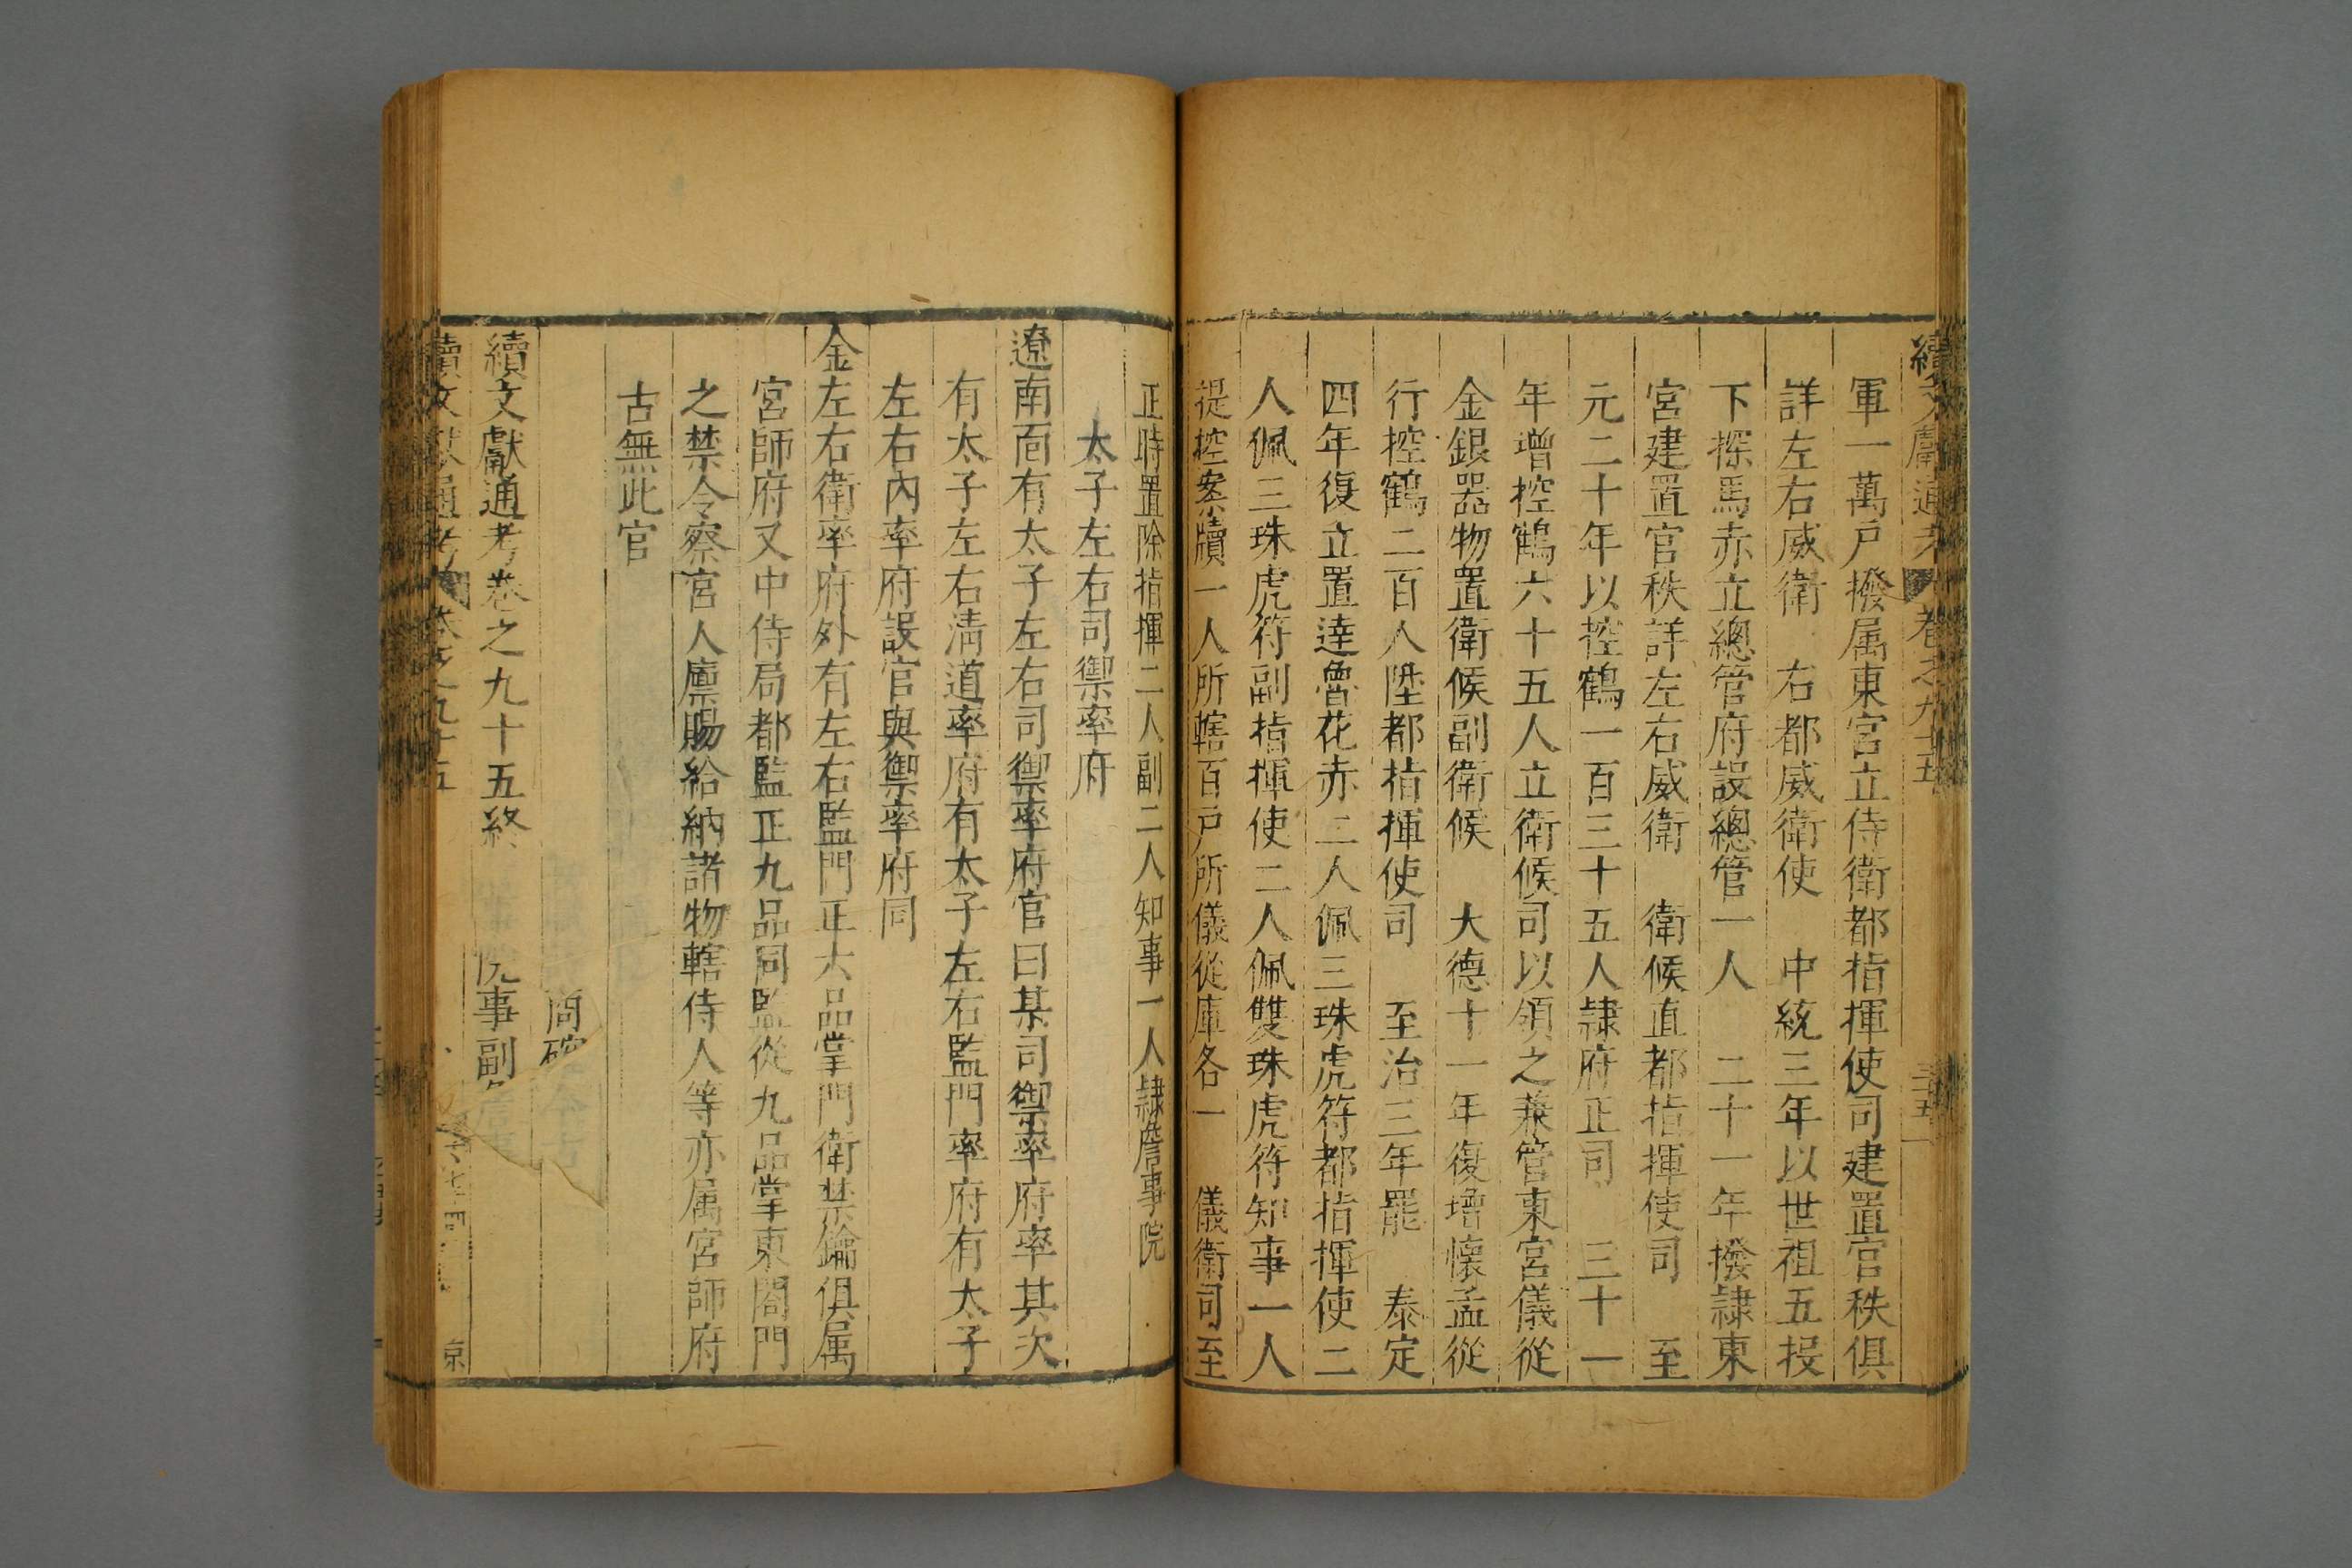 續文獻通考 卷之九十五 三十五
軍一萬戸撥属東宮立侍衛都指揮使司建置官秩俱
詳左右威衛 右都威衛使 中統三年以世祖五投
下探馬赤立總管府設總管一人 二十一年撥隷東
宮建置官秩詳左右威衛 衛候直都指揮使司 至
元二十年以控鶴一百三十五人隷府正司 三十一
年增控鶴六十五人立衛候司以領之兼管東宮儀從
金銀器物置衛候副衛候 大德十一年復增懷孟從
行控鶴二百人陞都指揮使司 至治三年罷 泰定
四年復立置達魯花赤二人佩三珠虎符都指揮使二
人佩三珠虎符副指揮使二人佩雙珠虎符知事一人
提控案牘一人所轄百戸所儀從庫各一 儀衛司至
正時置除指揮二人副二人知事一人隷詹事院
太子左右司禦率府
遼南面有太子左右司禦率府官曰某司禦率府率其次
有太子左右清道率府有太子左右監門率府有太子
左右內率府設官與禦率府同
金左右衛率府外有左右監門正六品掌門衛禁鑰俱属
宮師府又中侍局都監正九品同監從九品掌東閤門
之禁令察宮人廩賜給納諸物轄侍人等亦属宮師府
古無此官
續文獻通考卷之九十五終
院事副
續文獻通考 卷之九十五